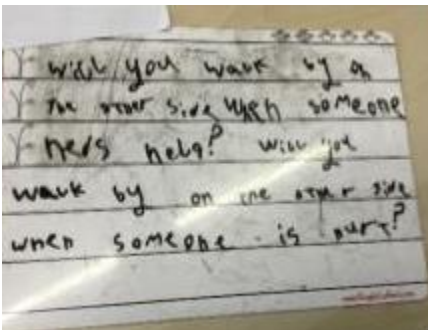 will you walk by on
the other side when someone
neds help? will you
walk by on the other side
when someone is hurt?